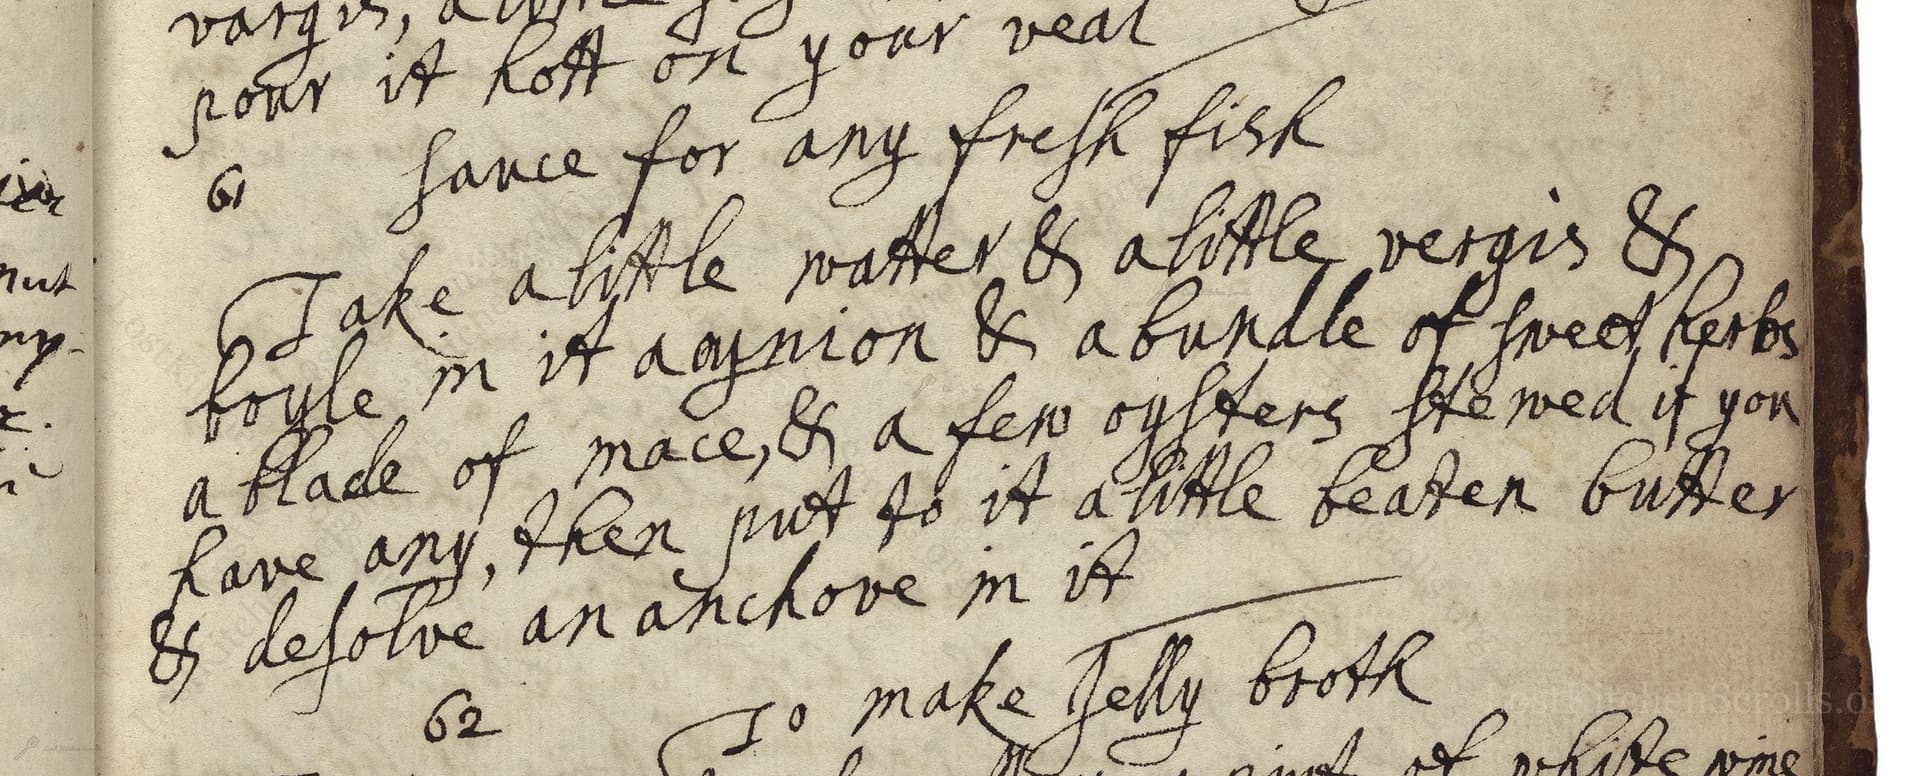 vargis, a little
pour it hott on your veal
61 sauce for any fresh fish
Take a little watter & a little vergis &
boyle in it a oynion & a bundle of sweet herbs
a blade of mace, & a few oysters stewed if you
have any, then putt to it a little beaten butter
& desolve an anchove in it
62 To make Jelly broth
pint of white wine
nut
my-
lostkitchenscrolls.o